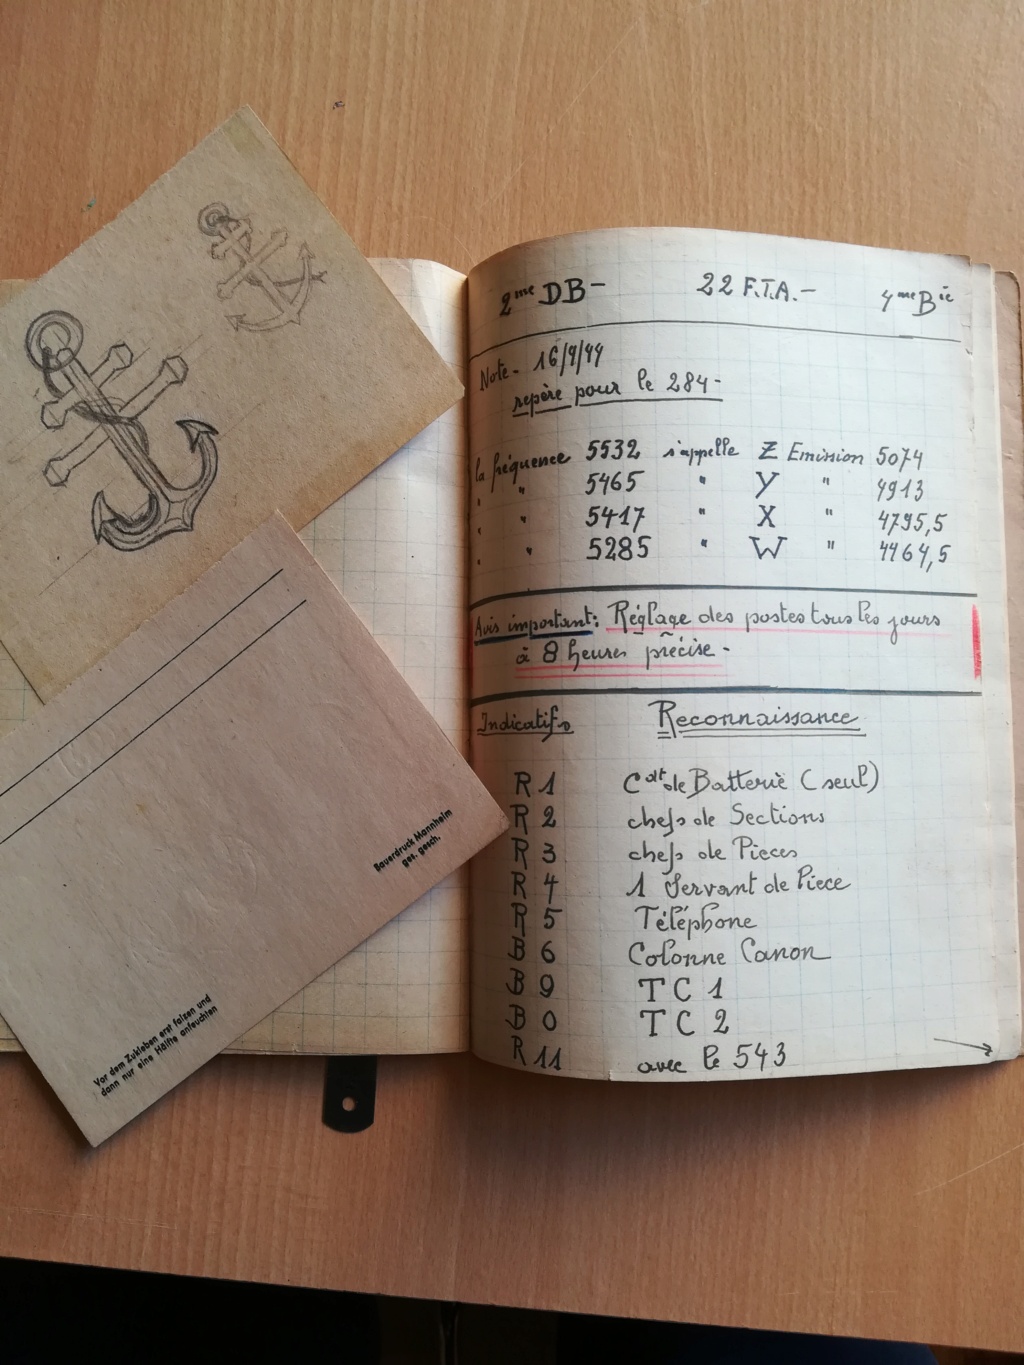 2me DB - 22 F.T.A. - 4me Bie
Note - 16/9/44
repère pour le 284 -
la fréquence 5532 s'appelle Z Emission 5074
" " 5465 " Y " 4913
" " 5417 " X " 4795,5
" " 5285 " W " 4464,5
Avis important : Réglage des postes tous les jours
à 8 heures précise -
Indicatifs Reconnaissance
R 1 Cdt de Batterie (seul)
R 2 chefs de Sections
R 3 chefs de Pieces
R 4 1 Servant de Piece
R 5 Téléphone
B 6 Colonne Canon
B 9 T C 1
B 0 T C 2
R 11 avec le 543
Bauerdruck Mannheim
ges. gesch.
Vor dem Zukleben erst falzen und
dann nur eine Hälfte anfeuchten